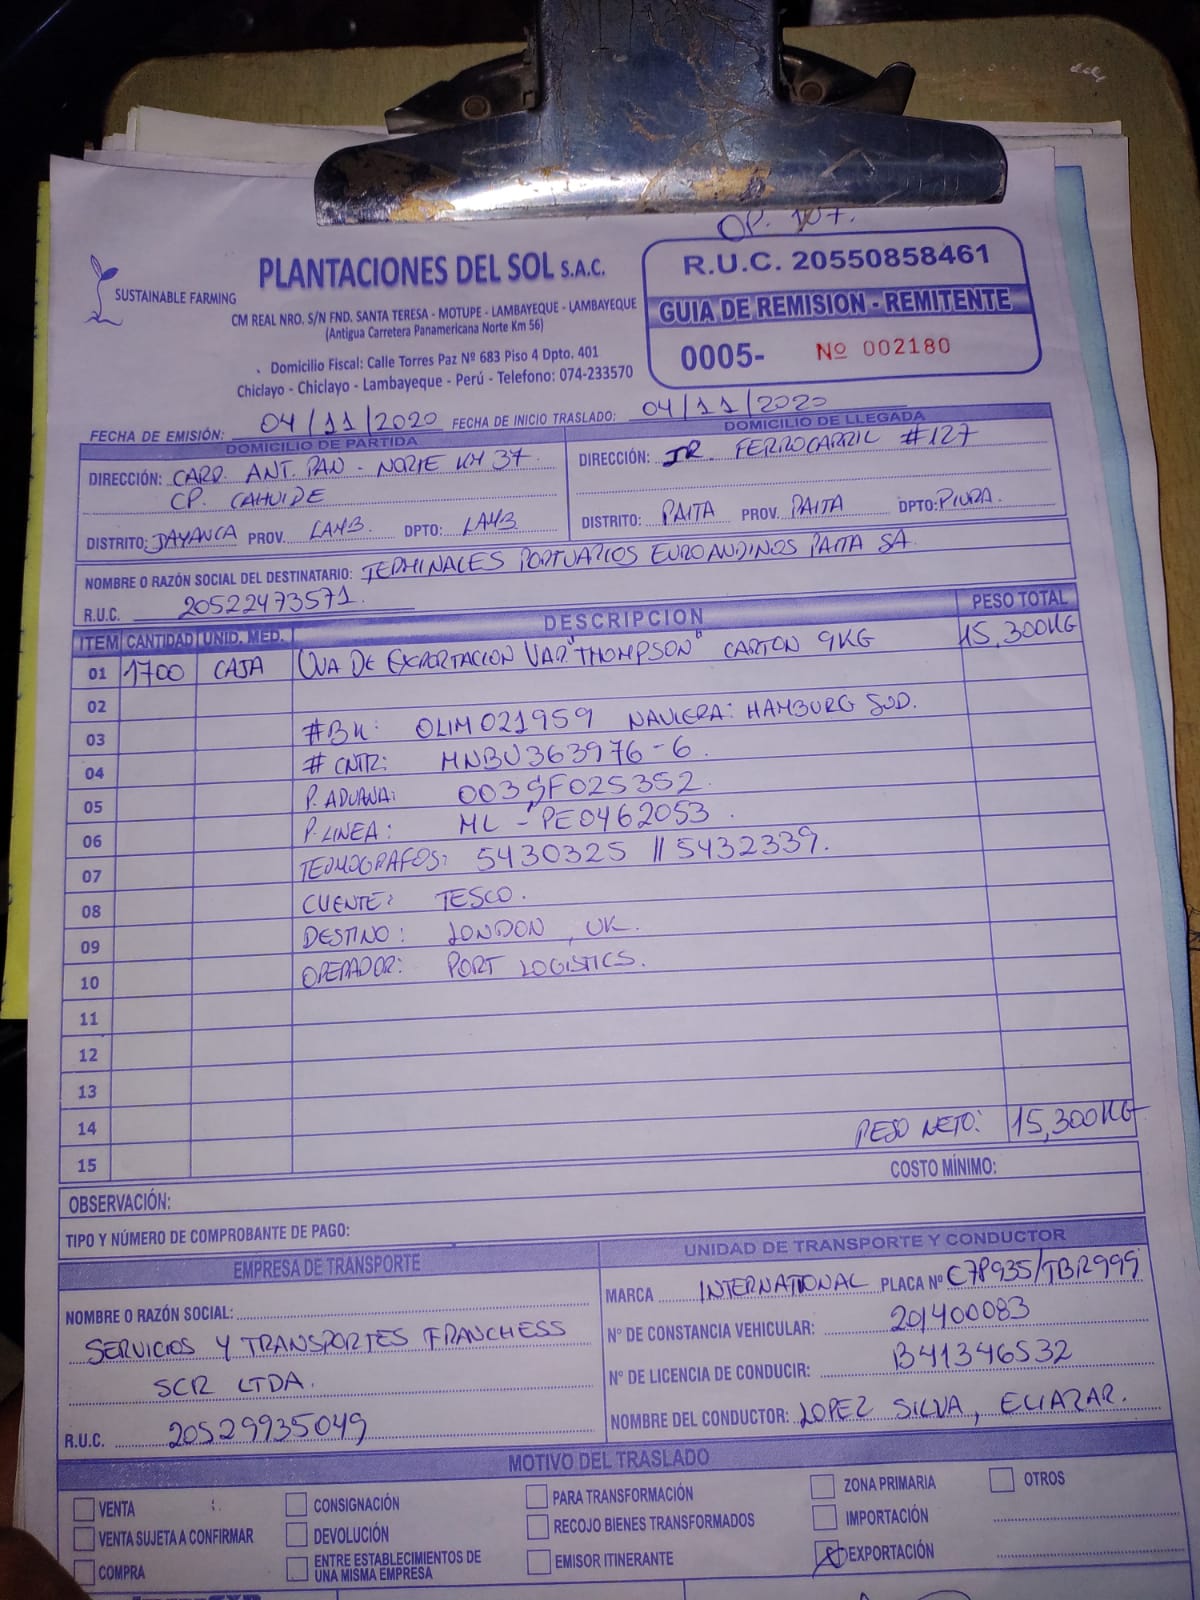 OP. 107.
SUSTAINABLE FARMING
PLANTACIONES DEL SOL S.A.C.
CM REAL NRO. S/N FND. SANTA TERESA - MOTUPE - LAMBAYEQUE - LAMBAYEQUE
(Antigua Carretera Panamericana Norte Km 56)
Domicilio Fiscal: Calle Torres Paz Nº 683 Piso 4 Dpto. 401
Chiclayo - Chiclayo - Lambayeque - Perú - Telefono: 074-233570
R.U.C. 20550858461
GUIA DE REMISION - REMITENTE
0005- Nº 002180
FECHA DE EMISIÓN: 04/11/2020 FECHA DE INICIO TRASLADO: 04/11/2020
DOMICILIO DE PARTIDA
DIRECCIÓN: CARR. ANT. PAN - NORTE KM 37
CP. CAHUIDE
DISTRITO: JAYANCA PROV. LAMB. DPTO: LAMB
DOMICILIO DE LLEGADA
DIRECCIÓN: JR. FERROCARRIL #127
DISTRITO: PAITA PROV. PAITA DPTO: PIURA.
NOMBRE O RAZÓN SOCIAL DEL DESTINATARIO: TERMINALES PORTUARIOS EUROANDINOS PAITA SA
R.U.C. 20522473571.
ITEM CANTIDAD UNID. MED. DESCRIPCION PESO TOTAL
01 1700 CAJA UVA DE EXPORTACION VAR "THOMPSON" CARTON 9KG 15,300KG
02
03 #BK: OLIM021959 NAVIERA: HAMBURG SUD.
04 # CNTR: MNBU363976-6.
05 P. ADUANA: 003GF025352.
06 P. LINEA: ML - PE0462053.
07 TERMOGRAFOS: 5430325 // 5432339.
08 CLIENTE: TESCO.
09 DESTINO: LONDON, UK.
10 OPERADOR: PORT LOGISTICS.
11
12
13
14 PESO NETO: 15,300KG
15
COSTO MÍNIMO:
OBSERVACIÓN:
TIPO Y NÚMERO DE COMPROBANTE DE PAGO:
EMPRESA DE TRANSPORTE
NOMBRE O RAZÓN SOCIAL:
SERVICIOS Y TRANSPORTES FRANCHESS
SCR LTDA.
R.U.C. 20529935049
UNIDAD DE TRANSPORTE Y CONDUCTOR
MARCA INTERNATIONAL PLACA Nº C7P935/TBR999
Nº DE CONSTANCIA VEHICULAR: 201400083
Nº DE LICENCIA DE CONDUCIR: B41346532
NOMBRE DEL CONDUCTOR: LOPEZ SILVA, ELIAZAR.
MOTIVO DEL TRASLADO
VENTA
VENTA SUJETA A CONFIRMAR
COMPRA
CONSIGNACIÓN
DEVOLUCIÓN
ENTRE ESTABLECIMIENTOS DE
UNA MISMA EMPRESA
PARA TRANSFORMACIÓN
RECOJO BIENES TRANSFORMADOS
EMISOR ITINERANTE
ZONA PRIMARIA
IMPORTACIÓN
X EXPORTACIÓN
OTROS